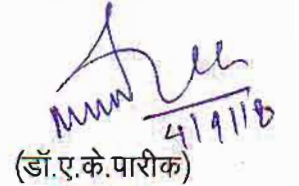 4/9/18
(डॉ.ए.के.पारीक)